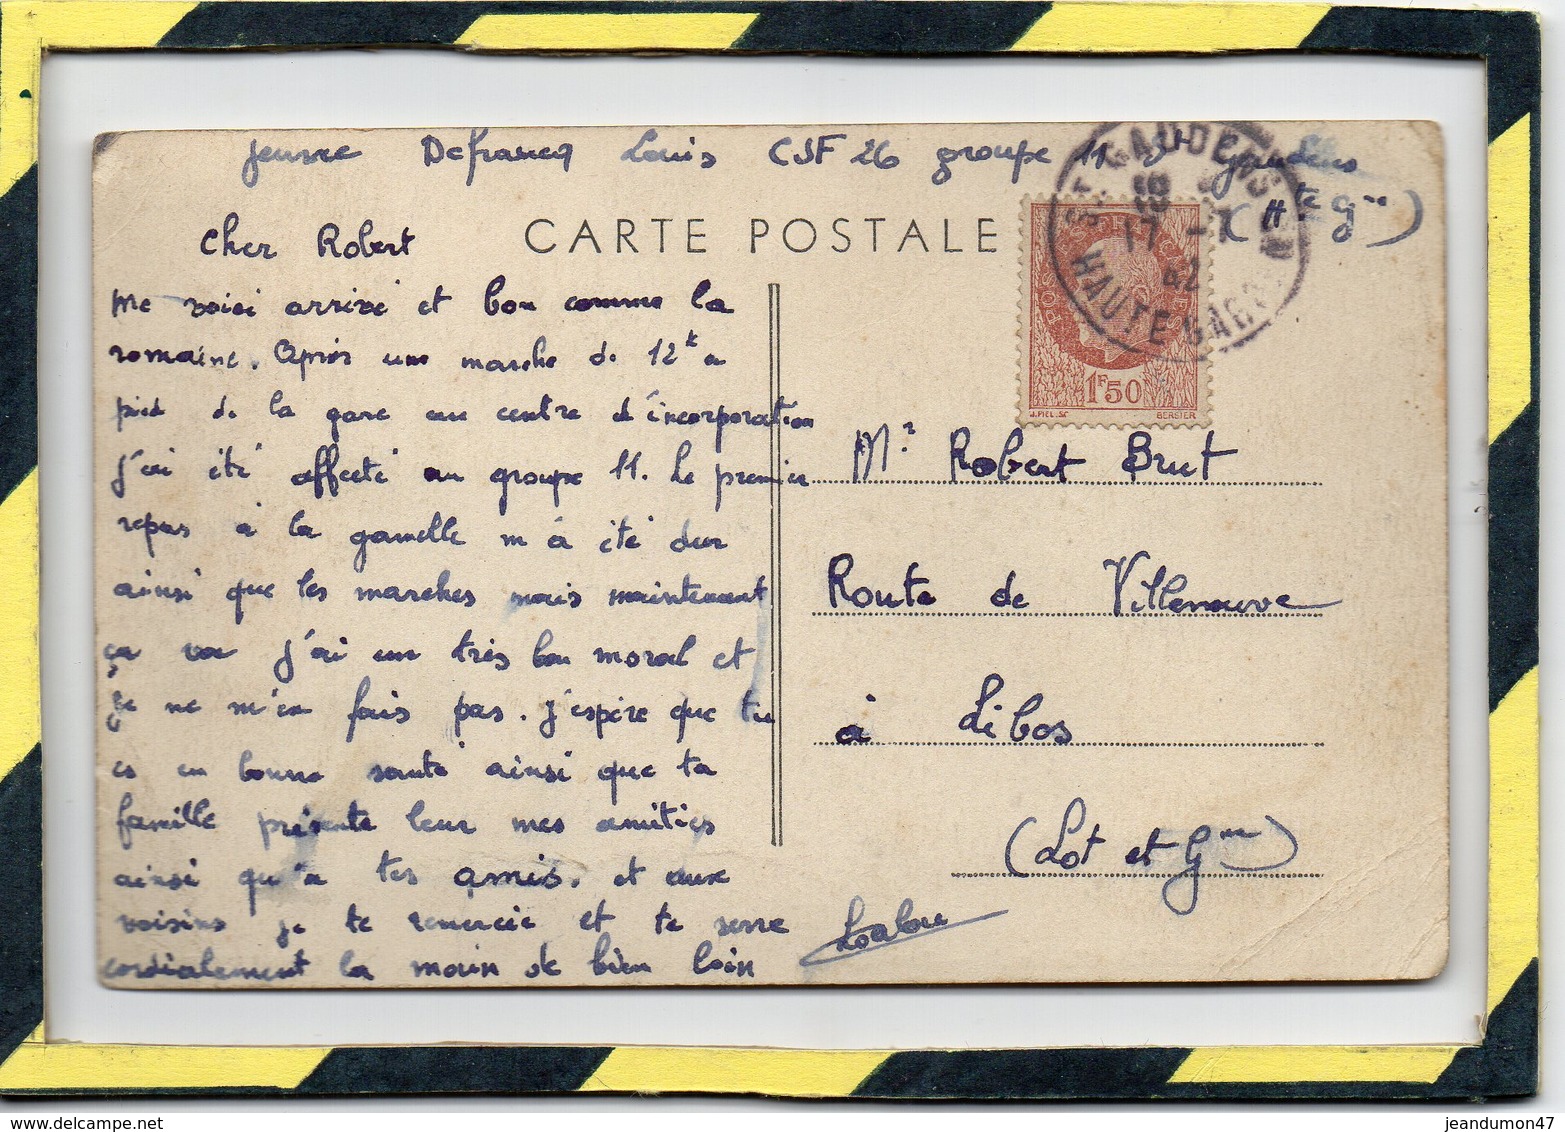 jeune Defrancq Louis CJF 26 groupe 11 St Gaudens
(Hte Gne)
ST GAUDENS
18
17 -7
42
HAUTE GARONNE
CARTE POSTALE
POSTES FRANCAISES
1F50
J.PIEL.SC BERSIER
Cher Robert
me voici arrivé et bon comme la
romaine. Après une marche de 12k a
pied de la gare au centre d'incorporation
j'ai été affecté au groupe 11. Le premier
repas à la gamelle m'à été dur
ainsi que les marches mais maintenant
ça va j'ai un très bon moral et
je ne m'en fais pas. J'espère que tu
es en bonne santé ainsi que ta
famille présente leur mes amitiés
ainsi qu'a tes amis. et aux
voisins je te remercie et te serre
cordialement la main de bien loin
Mr Robert Brut
Route de Villeneuve
à Libos
(Lot et Gne)
jeandumon47